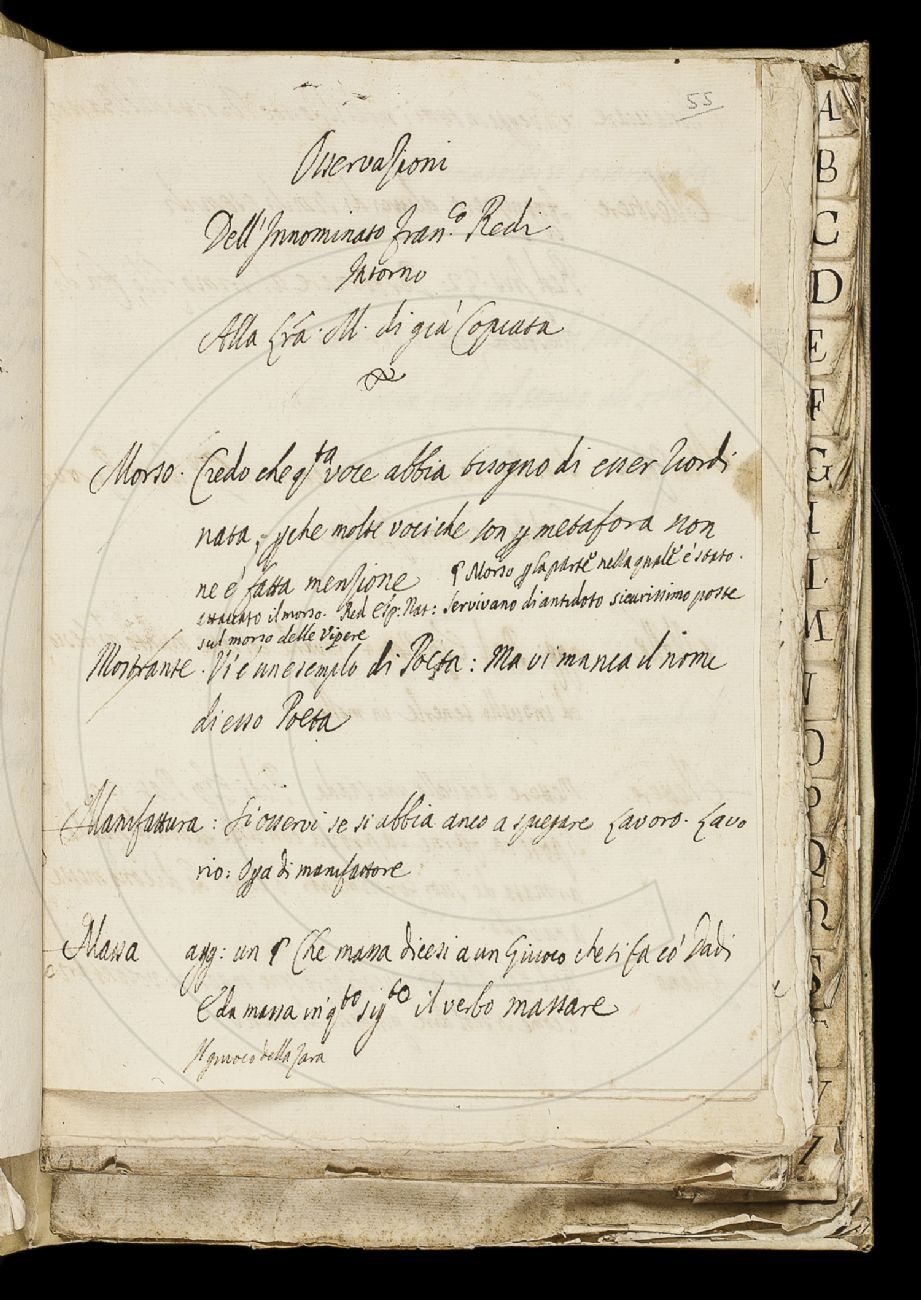 55
Osservazioni
Dell'Innominato Fran.co Redi
Intorno
Alla Lra. M. di già Copiata
Morso. Credo che qta voce abbia bisogno di esser riordi
nata, pche molte voci che son p metafora non
ne è fatta menzione § Morso p la parte nella quale è stato
attaccato il morso. Red. Esp. Nat: Servivano di antidoto sicurissimo poste
sul morso delle Vipere
Mostrante. Vi è un esemplo di Poeta: Ma vi manca il nome
di esso Poeta
Manifattura: Si osservi se si abbia anco a spiegare Lavoro. Lavo
rio: Opa di manifattore
Massa agg: un § Che massa dicesi a un Giuoco che si fa co' Dadi
E da massa in qto sigto il verbo massare
Il giuoco della Zara
A
B
C
D
E
F
G
I
L
M
N
O
P
Q
R
S
V
Z